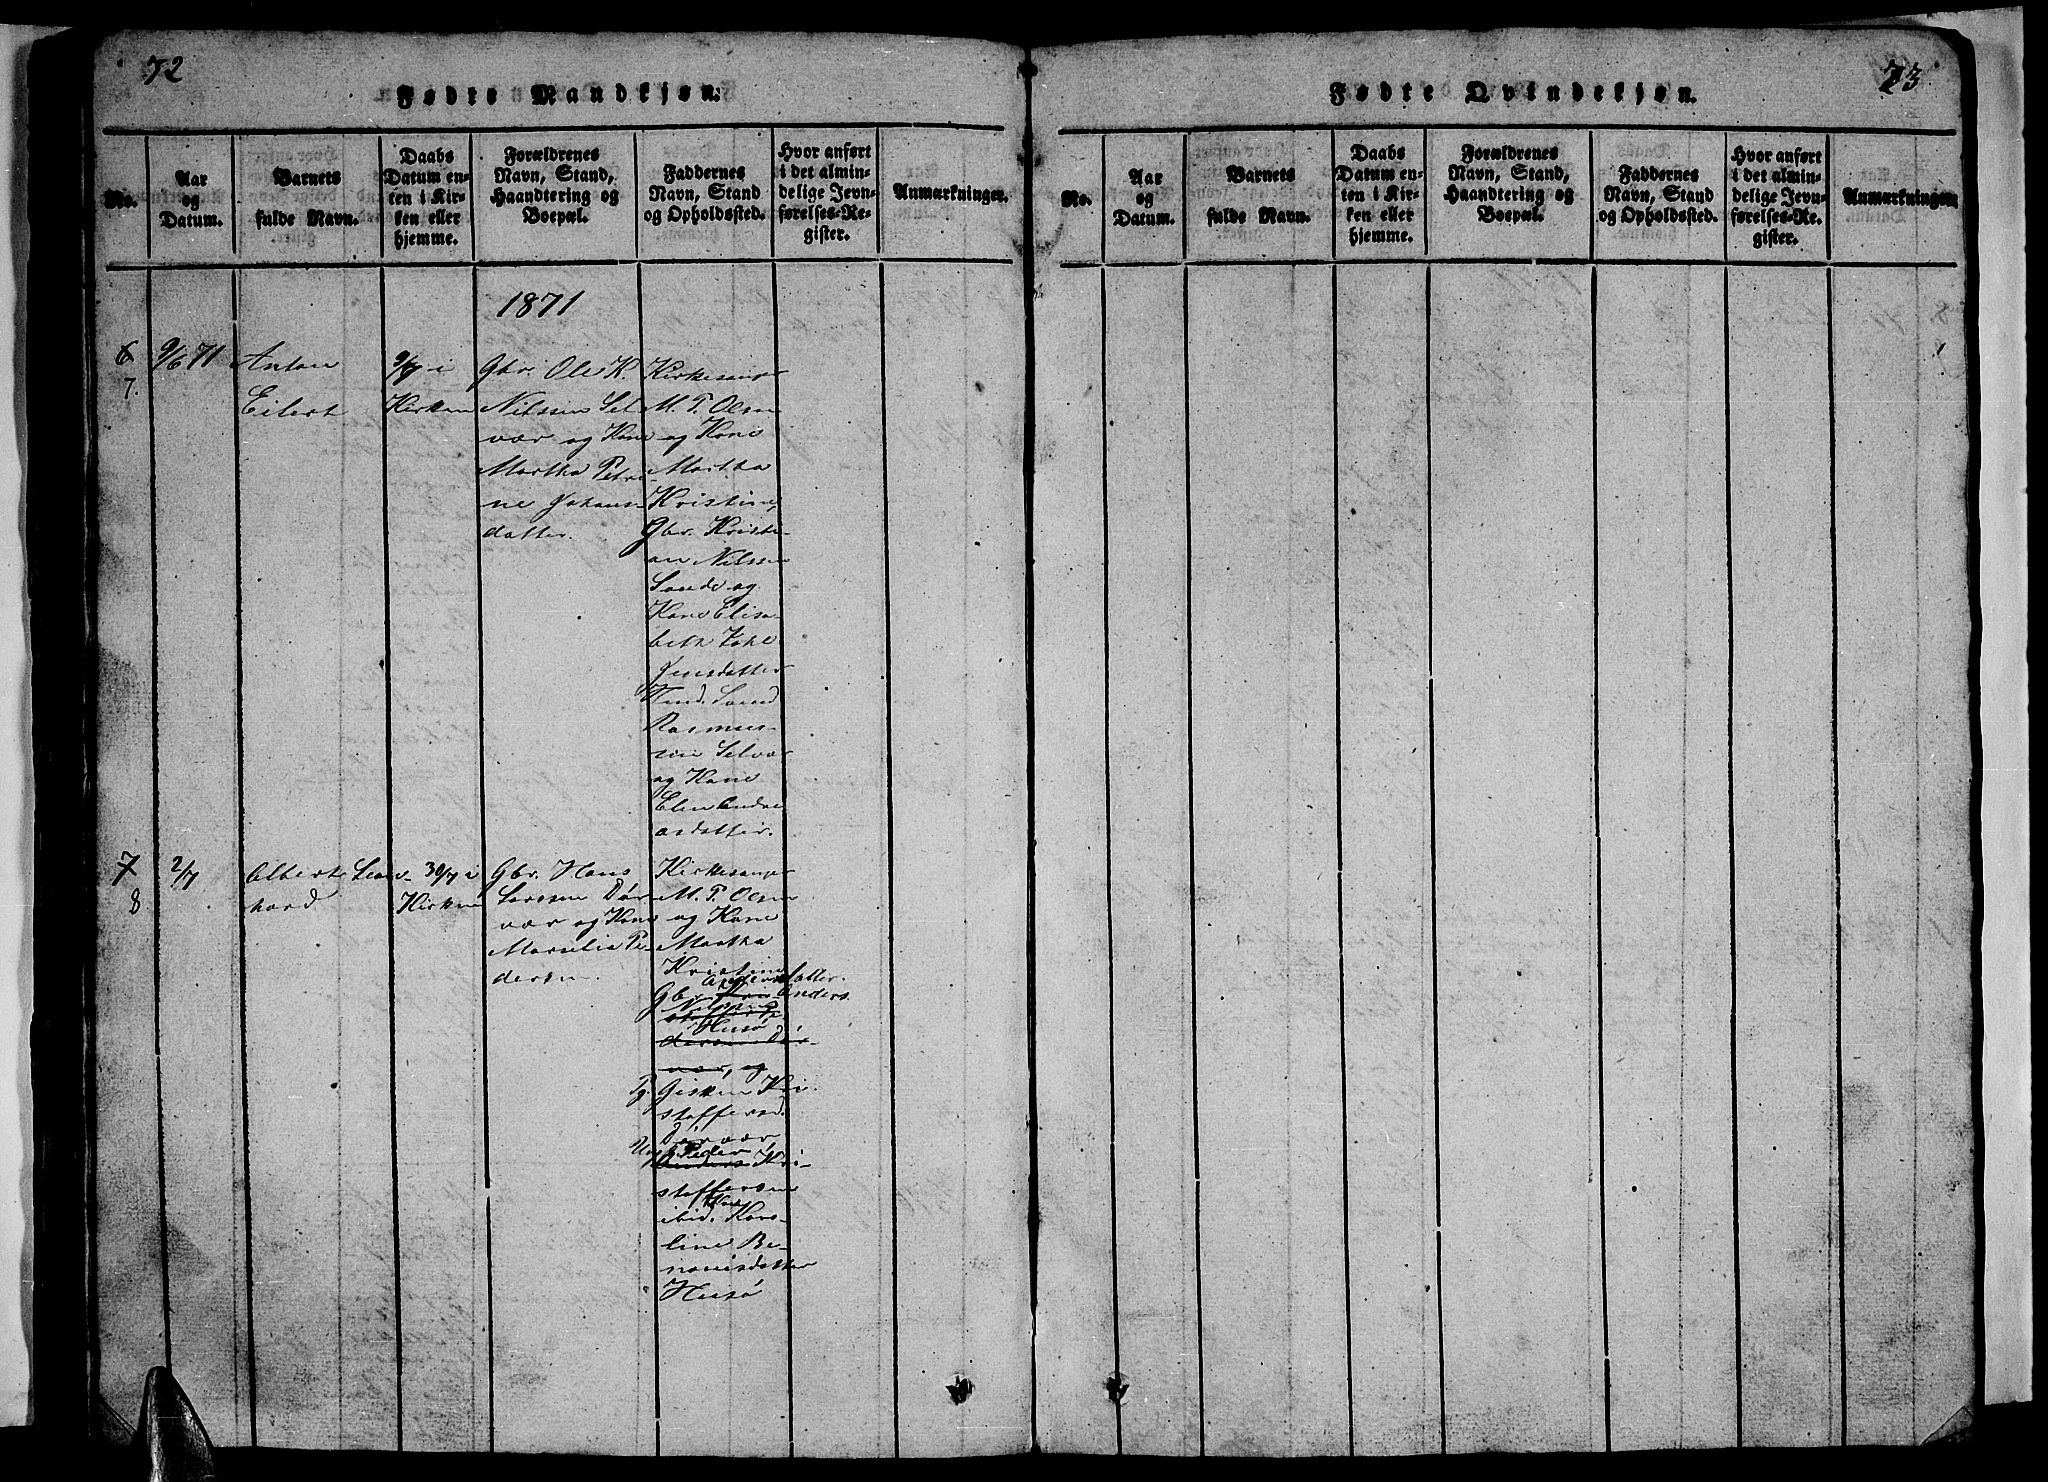 72
Fødte Mandkjøn.
No.
Aar
og
Datum.
Barnets
fulde Navn.
Daabs
Datum en-
ten i Kir-
ken eller
hjemme.
Forældrenes
Navn, Stand,
Haandtering og
Boepæl.
Faddernes
Navn, Stand
og Opholdssted.
Hvor anført
i det almin-
delige Jevn-
førelses-Re-
gister.
Anmærkninger.
1871
6
7.
9/6 71
Anton
Eilert
9/7 i
Kirken
Gbr. Ole K.
Nilssen Sel
vær og Kone
Martha Petri-
ne Johans-
datter.
Kirkesanger
M. P. Olsen
og Kone
Martha
Kristine,
Gbr. Kristi-
an Nilssen
Sande og
Kone Elisa-
beth
Jensdatter
Rasmus-
sen Selvær
og Kone
Elen Andre
asdatter.
7
8
2/7
Albert Leon-
hard
30/7 i
Kirken
Gbr. Hans
Larssen Dør
vær og Kone
Mornelia Pe-
dersen.
Kirkesanger
M. P. Olsen
og Kone
Martha
Kristine
Andersdatter.
Gbr. Kris- Anders
Nilssen
stoffer Pe
Husø
dersen Dør-
vær, og
Pg. Gisken Kri-
stoffersd.
Dørvær
Ungk. Peder
Anders Kri-
stoffersen
Kone
ibid. Karo-
line Be-
noniesdatter
Husø
73
Fødte Qvindekjøn.
No.
Aar
og
Datum.
Barnets
fulde Navn.
Daabs
Datum en-
ten i Kir-
ken eller
hjemme.
Forældrenes
Navn, Stand,
Haandtering og
Boepæl.
Faddernes
Navn, Stand
og Opholdssted.
Hvor anført
i det almin-
delige Jevn-
førelses-Re-
gister.
Anmærkninger.